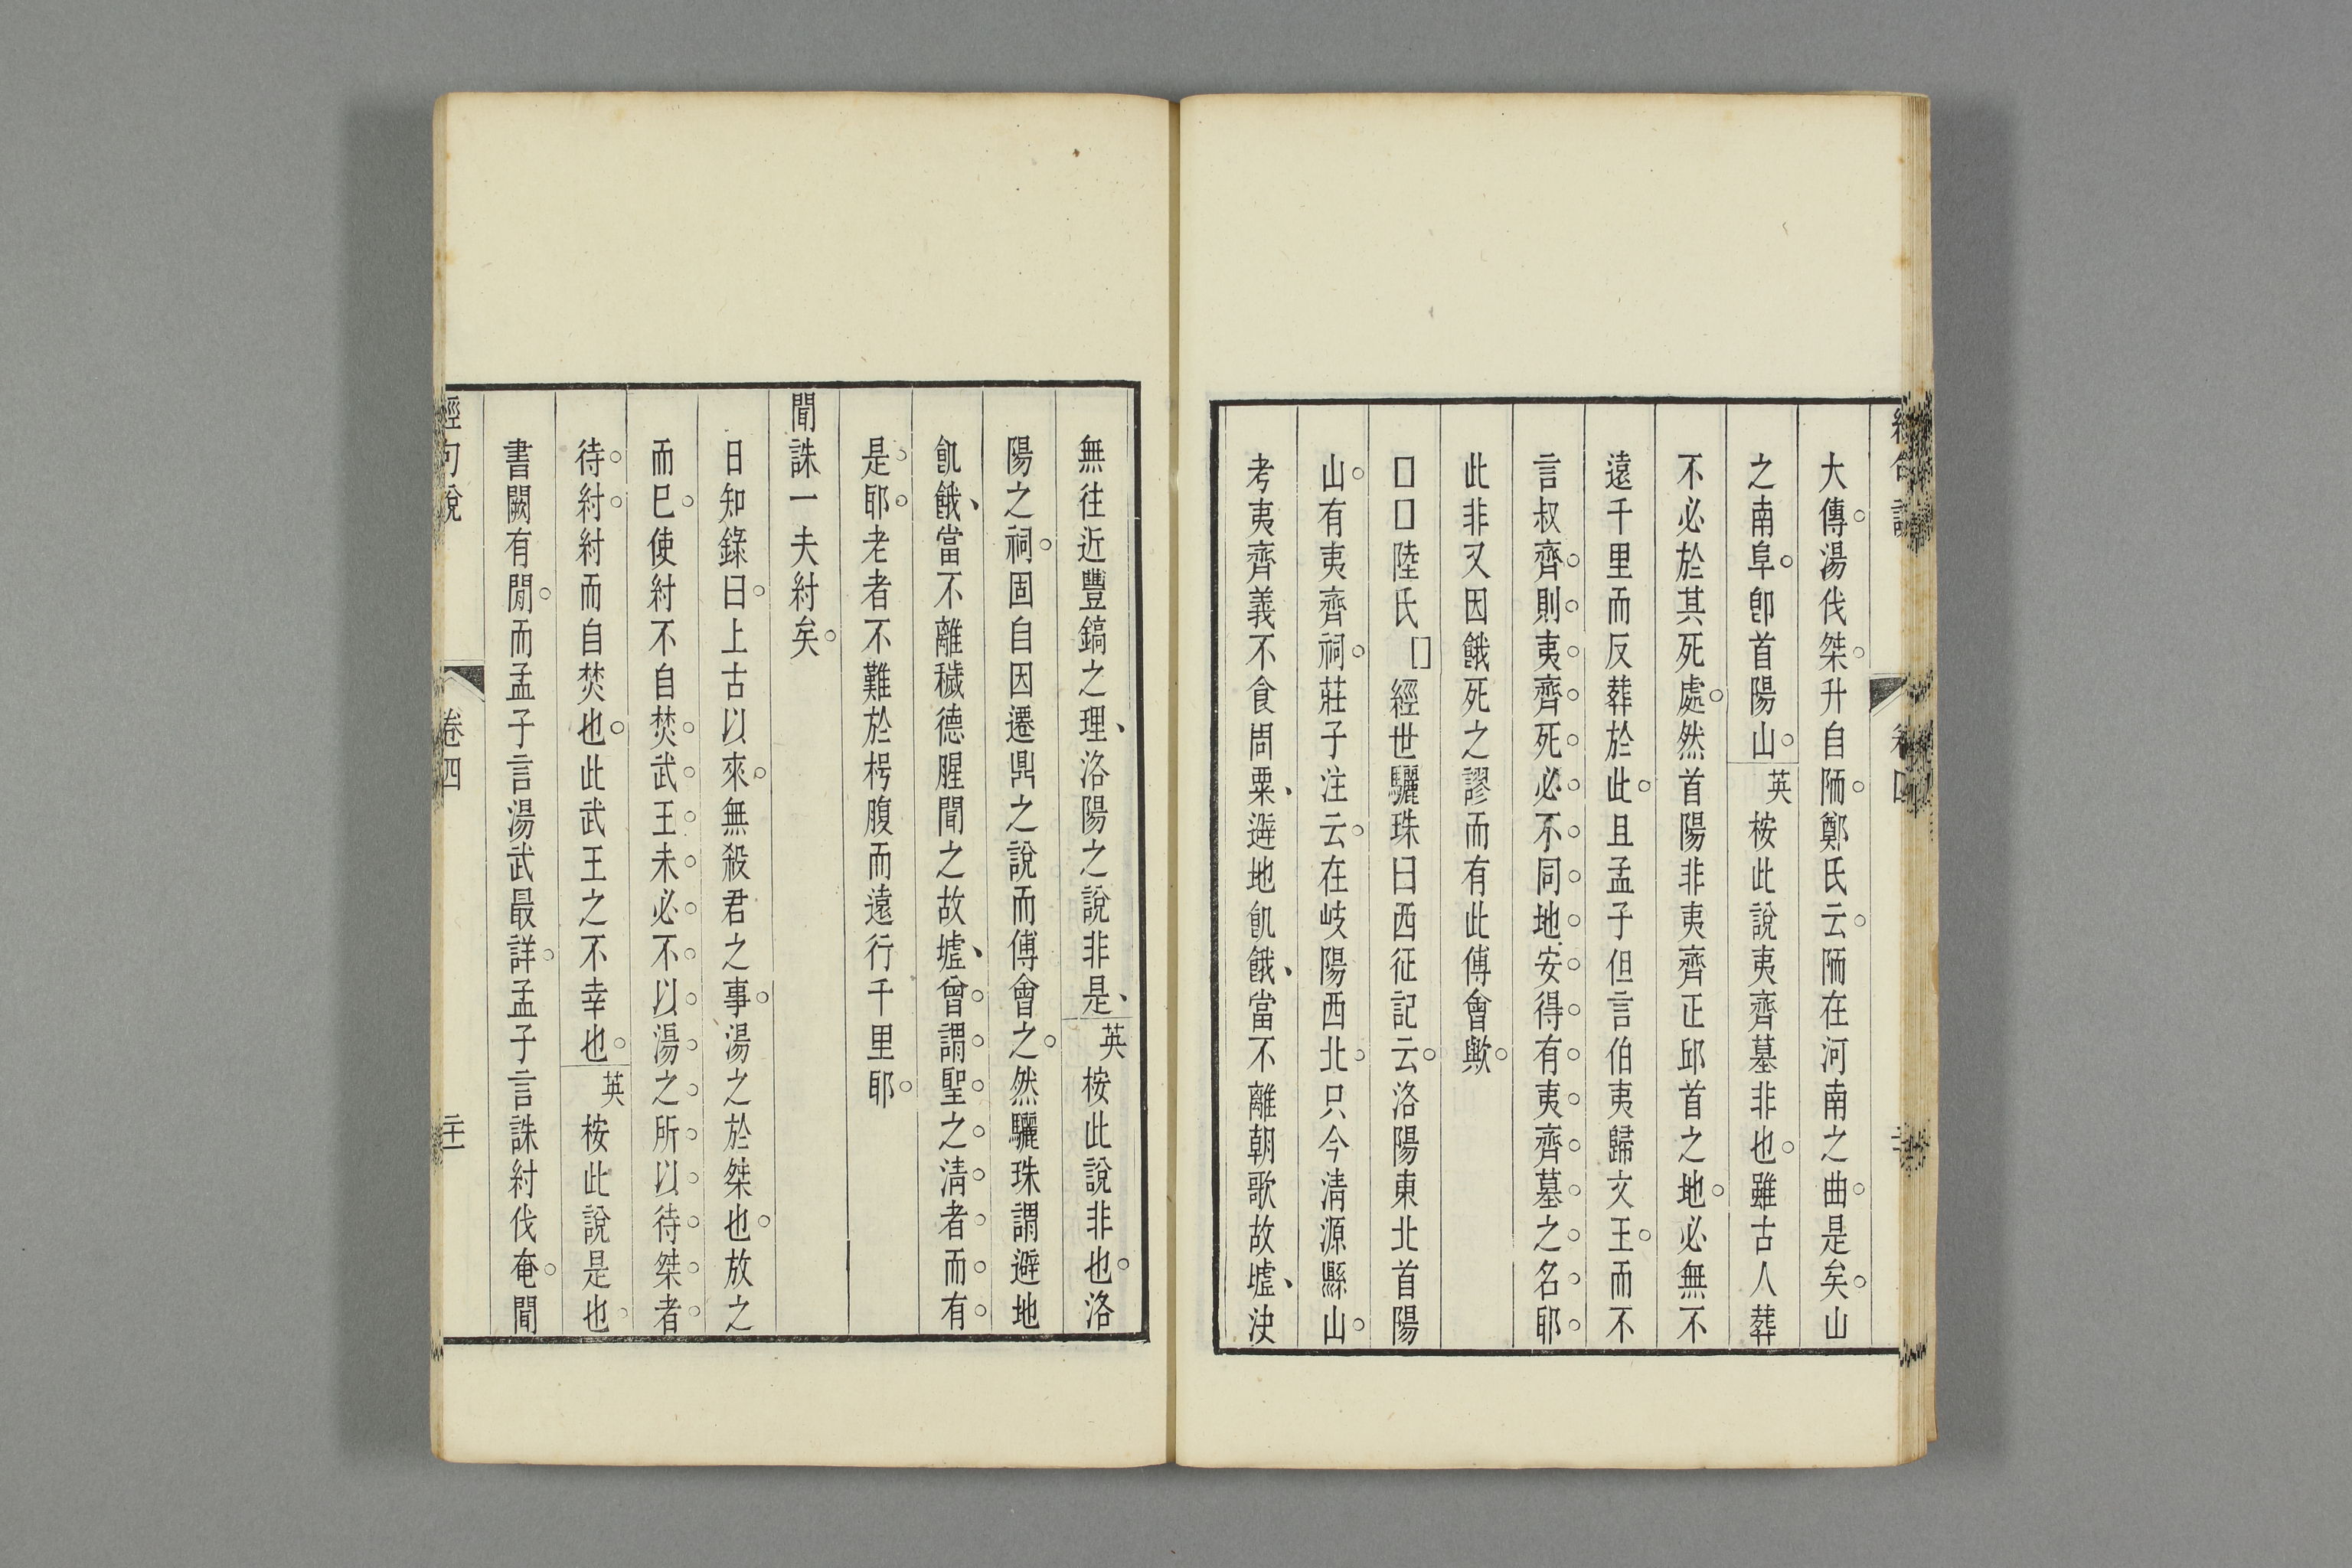 大傳湯伐桀升自陑鄭氏云陑在河南之曲是矣山
之南阜卽首陽山英桉此說夷齊墓非也雖古人葬
不必於其死處然首陽非夷齊正邱首之地必無不
遠千里而反葬於此且孟子但言伯夷歸文王而不
言叔齊則夷齊死必不同地安得有夷齊墓之名耶
此非又因餓死之謬而有此傅會歟
□□陸氏□經世驪珠曰西征記云洛陽東北首陽
山有夷齊祠莊子注云在岐陽西北只今清源縣山
考夷齊義不食周粟、遯地飢餓、當不離朝歌故墟、決
無往近豐鎬之理、洛陽之說非是、英桉此說非也洛
陽之祠固自因遷鼎之說而傅會之然驪珠謂避地
飢餓、當不離穢德腥聞之故墟、曾謂聖之清者而有
是耶老者不難於枵腹而遠行千里耶
聞誅一夫紂矣
日知錄曰上古以來無殺君之事湯之於桀也放之
而已使紂不自焚武王未必不以湯之所以待桀者
待紂紂而自焚也此武王之不幸也英桉此說是也
書闕有閒而孟子言湯武最詳孟子言誅紂伐奄聞
經句說 卷四 二十一